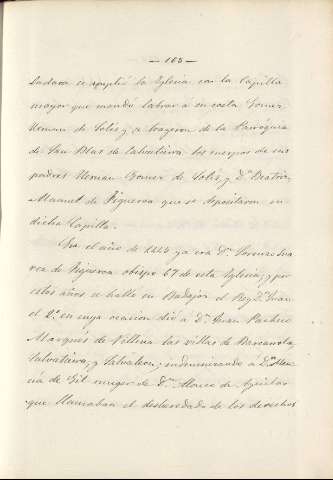 — 165 —
ladara se amplió la Iglesia con la Capilla
mayor que mandó labrar á su costa Gomez
Hernan de Solís y se trageron de la Parroquia
de San Blas de Salvatierra los cuerpos de sus
padres Hernan Gomez de Solís y D.ª Beatriz
Manuel de Figueroa que se depositaron en
dicha Capilla.
En el año de 1445 ya era D.n Lorenzo Sua
rez de Figueroa obispo 67 de esta Iglesia, y por
estos años se halló en Badajoz el Rey D. Juan
el 2.º en cuya ocasion dió á D.n Juan Pacheco
Marqués de Villena las villas de Barcarrota,
Salvatierra, y Salvaleon; indemnizando á D.ª Ma
ría de Gil muger de D.n Alonso de Aguilar
que llamaban el desheredado de los derechos